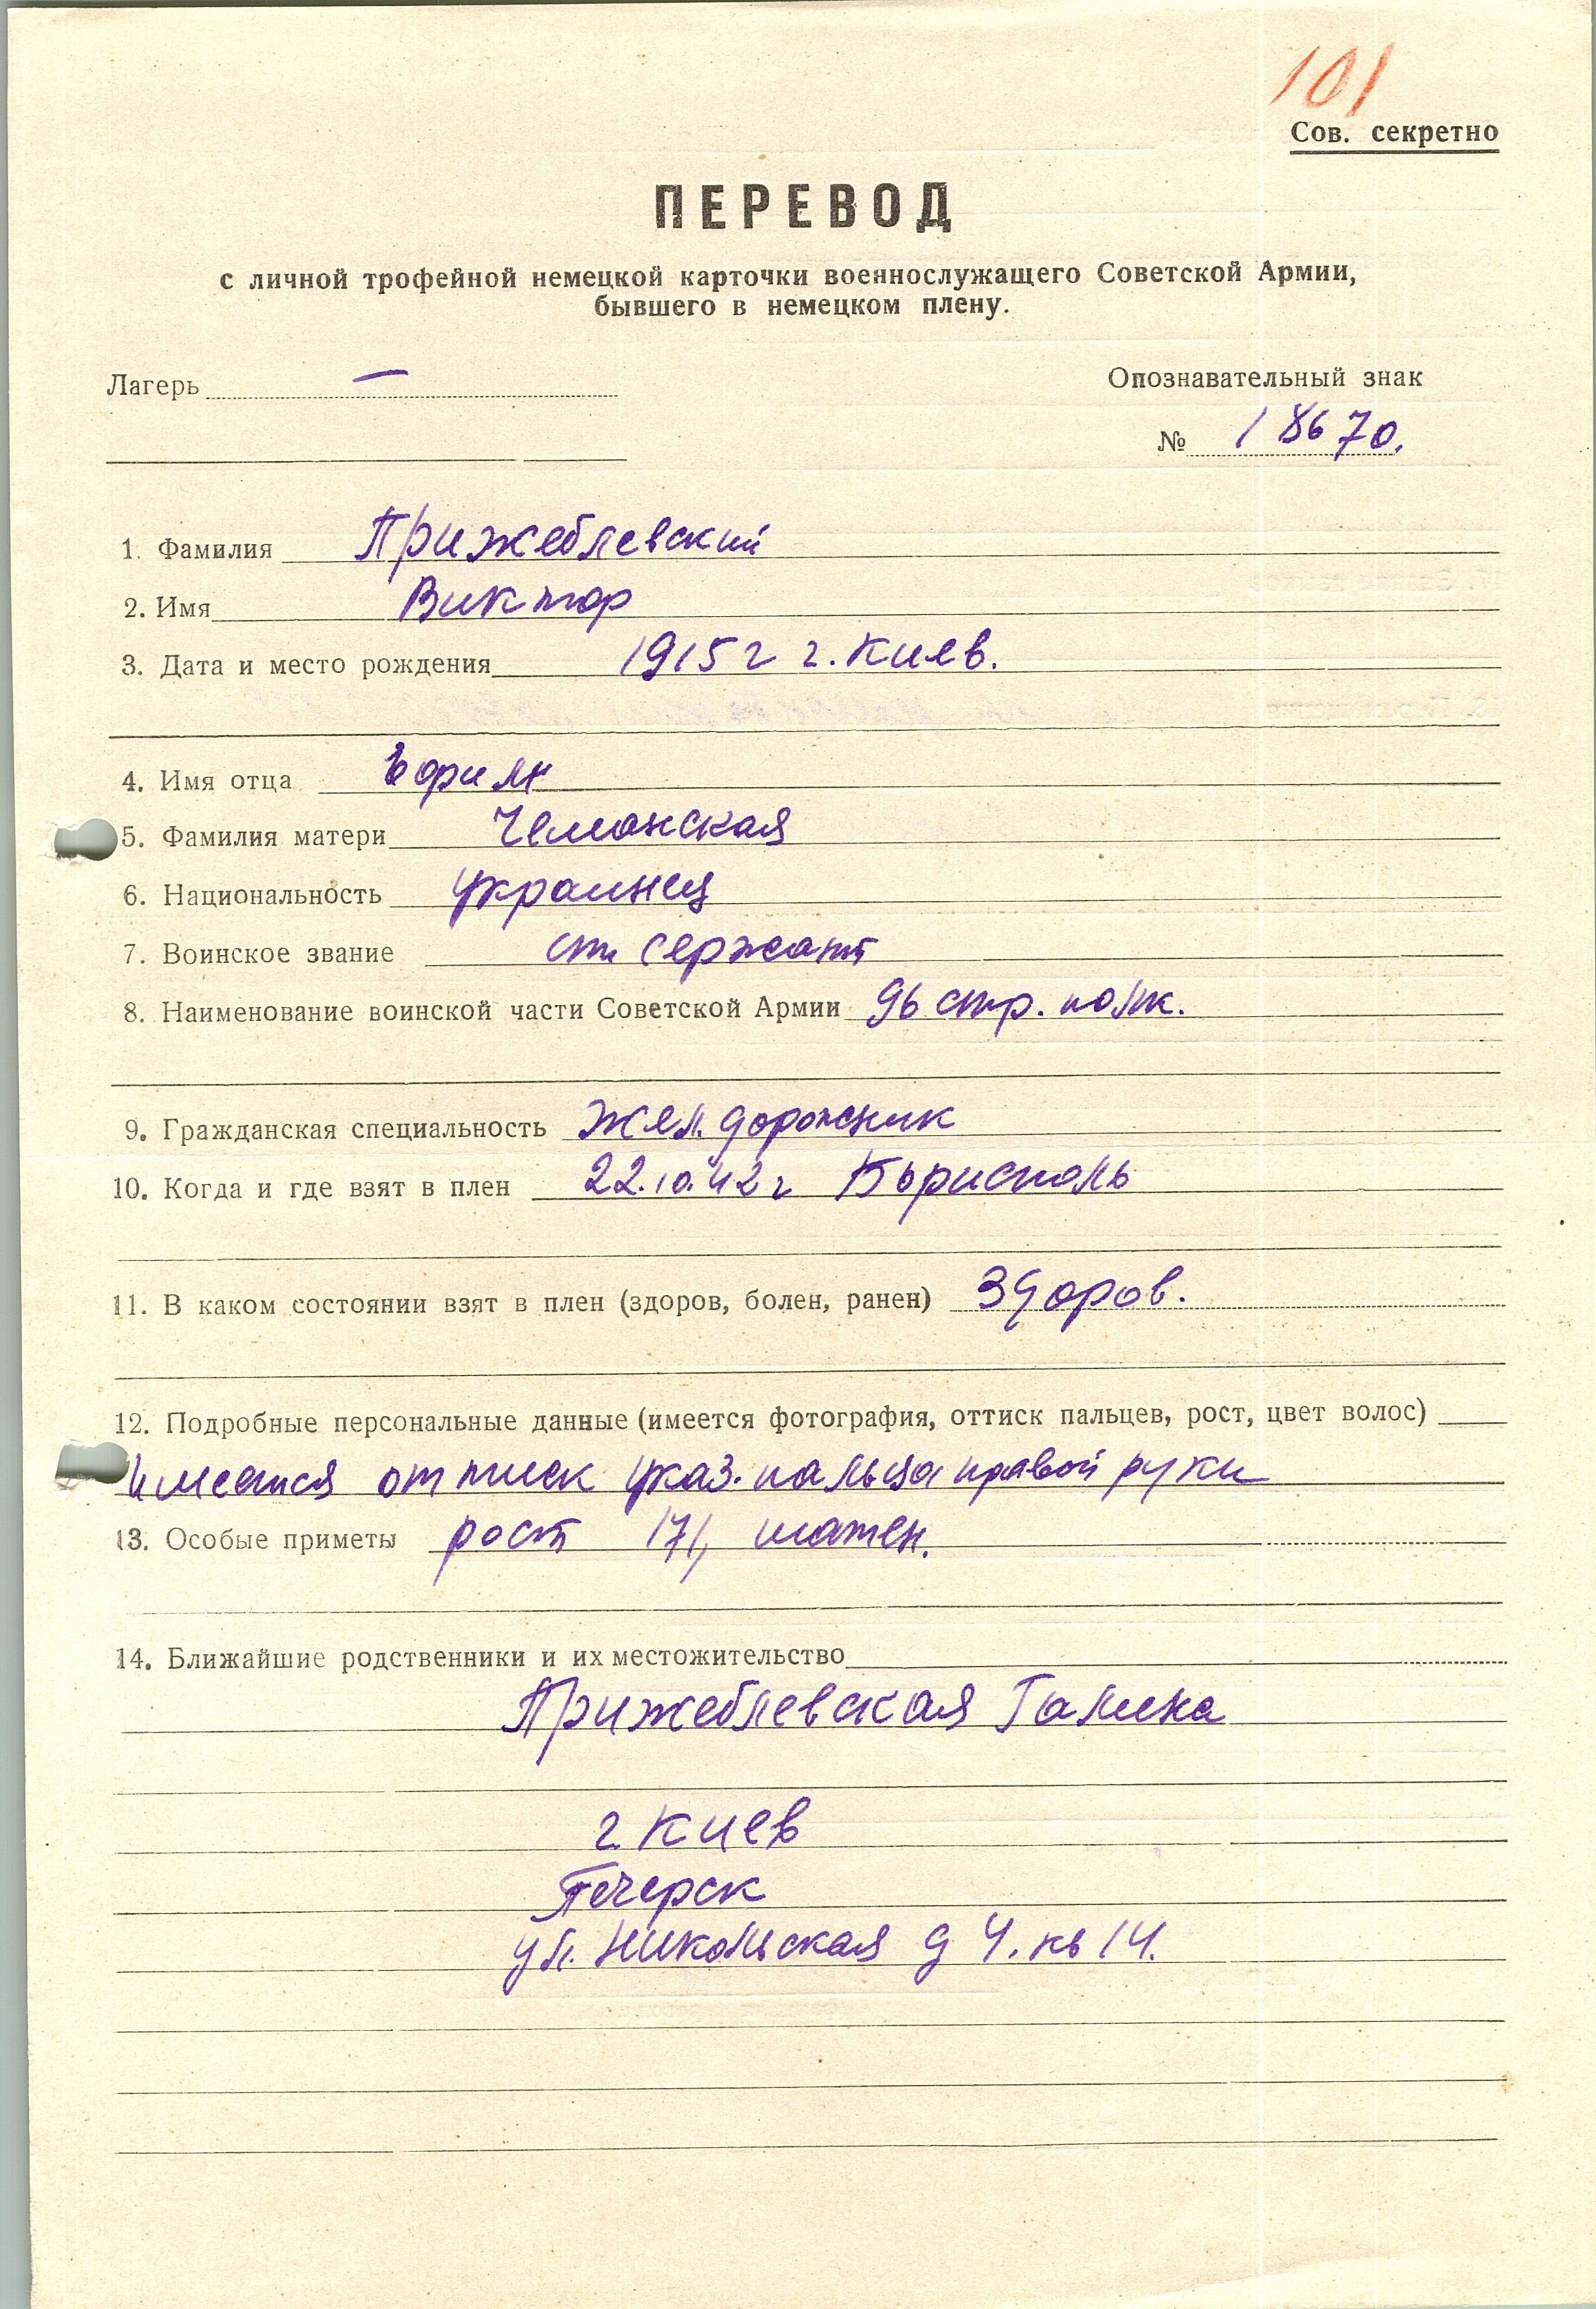 101
Сов. секретно
ПЕРЕВОД
с личной трофейной немецкой карточки военнослужащего Советской Армии,
бывшего в немецком плену.
Лагерь —
Опознавательный знак
№ 18670.
1. Фамилия Прижеблевский
2. Имя Виктор
3. Дата и место рождения 1915 г г. Киев.
4. Имя отца
5. Фамилия матери Чеманская
6. Национальность украинец
7. Воинское звание ст сержант
8. Наименование воинской части Советской Армии 96 стр. полк.
9. Гражданская специальность жел. дорожник
10. Когда и где взят в плен 22.10.42 г Бырисполь
11. В каком состоянии взят в плен (здоров, болен, ранен) Здоров.
12. Подробные персональные данные (имеется фотография, оттиск пальцев, рост, цвет волос)
имеется оттиск указ. пальца правой руки
13. Особые приметы рост 171, шатен.
14. Ближайшие родственники и их местожительство
Прижеблевская Галина
г. Киев
Печерск
ул. Никольская д 4. кв 14.